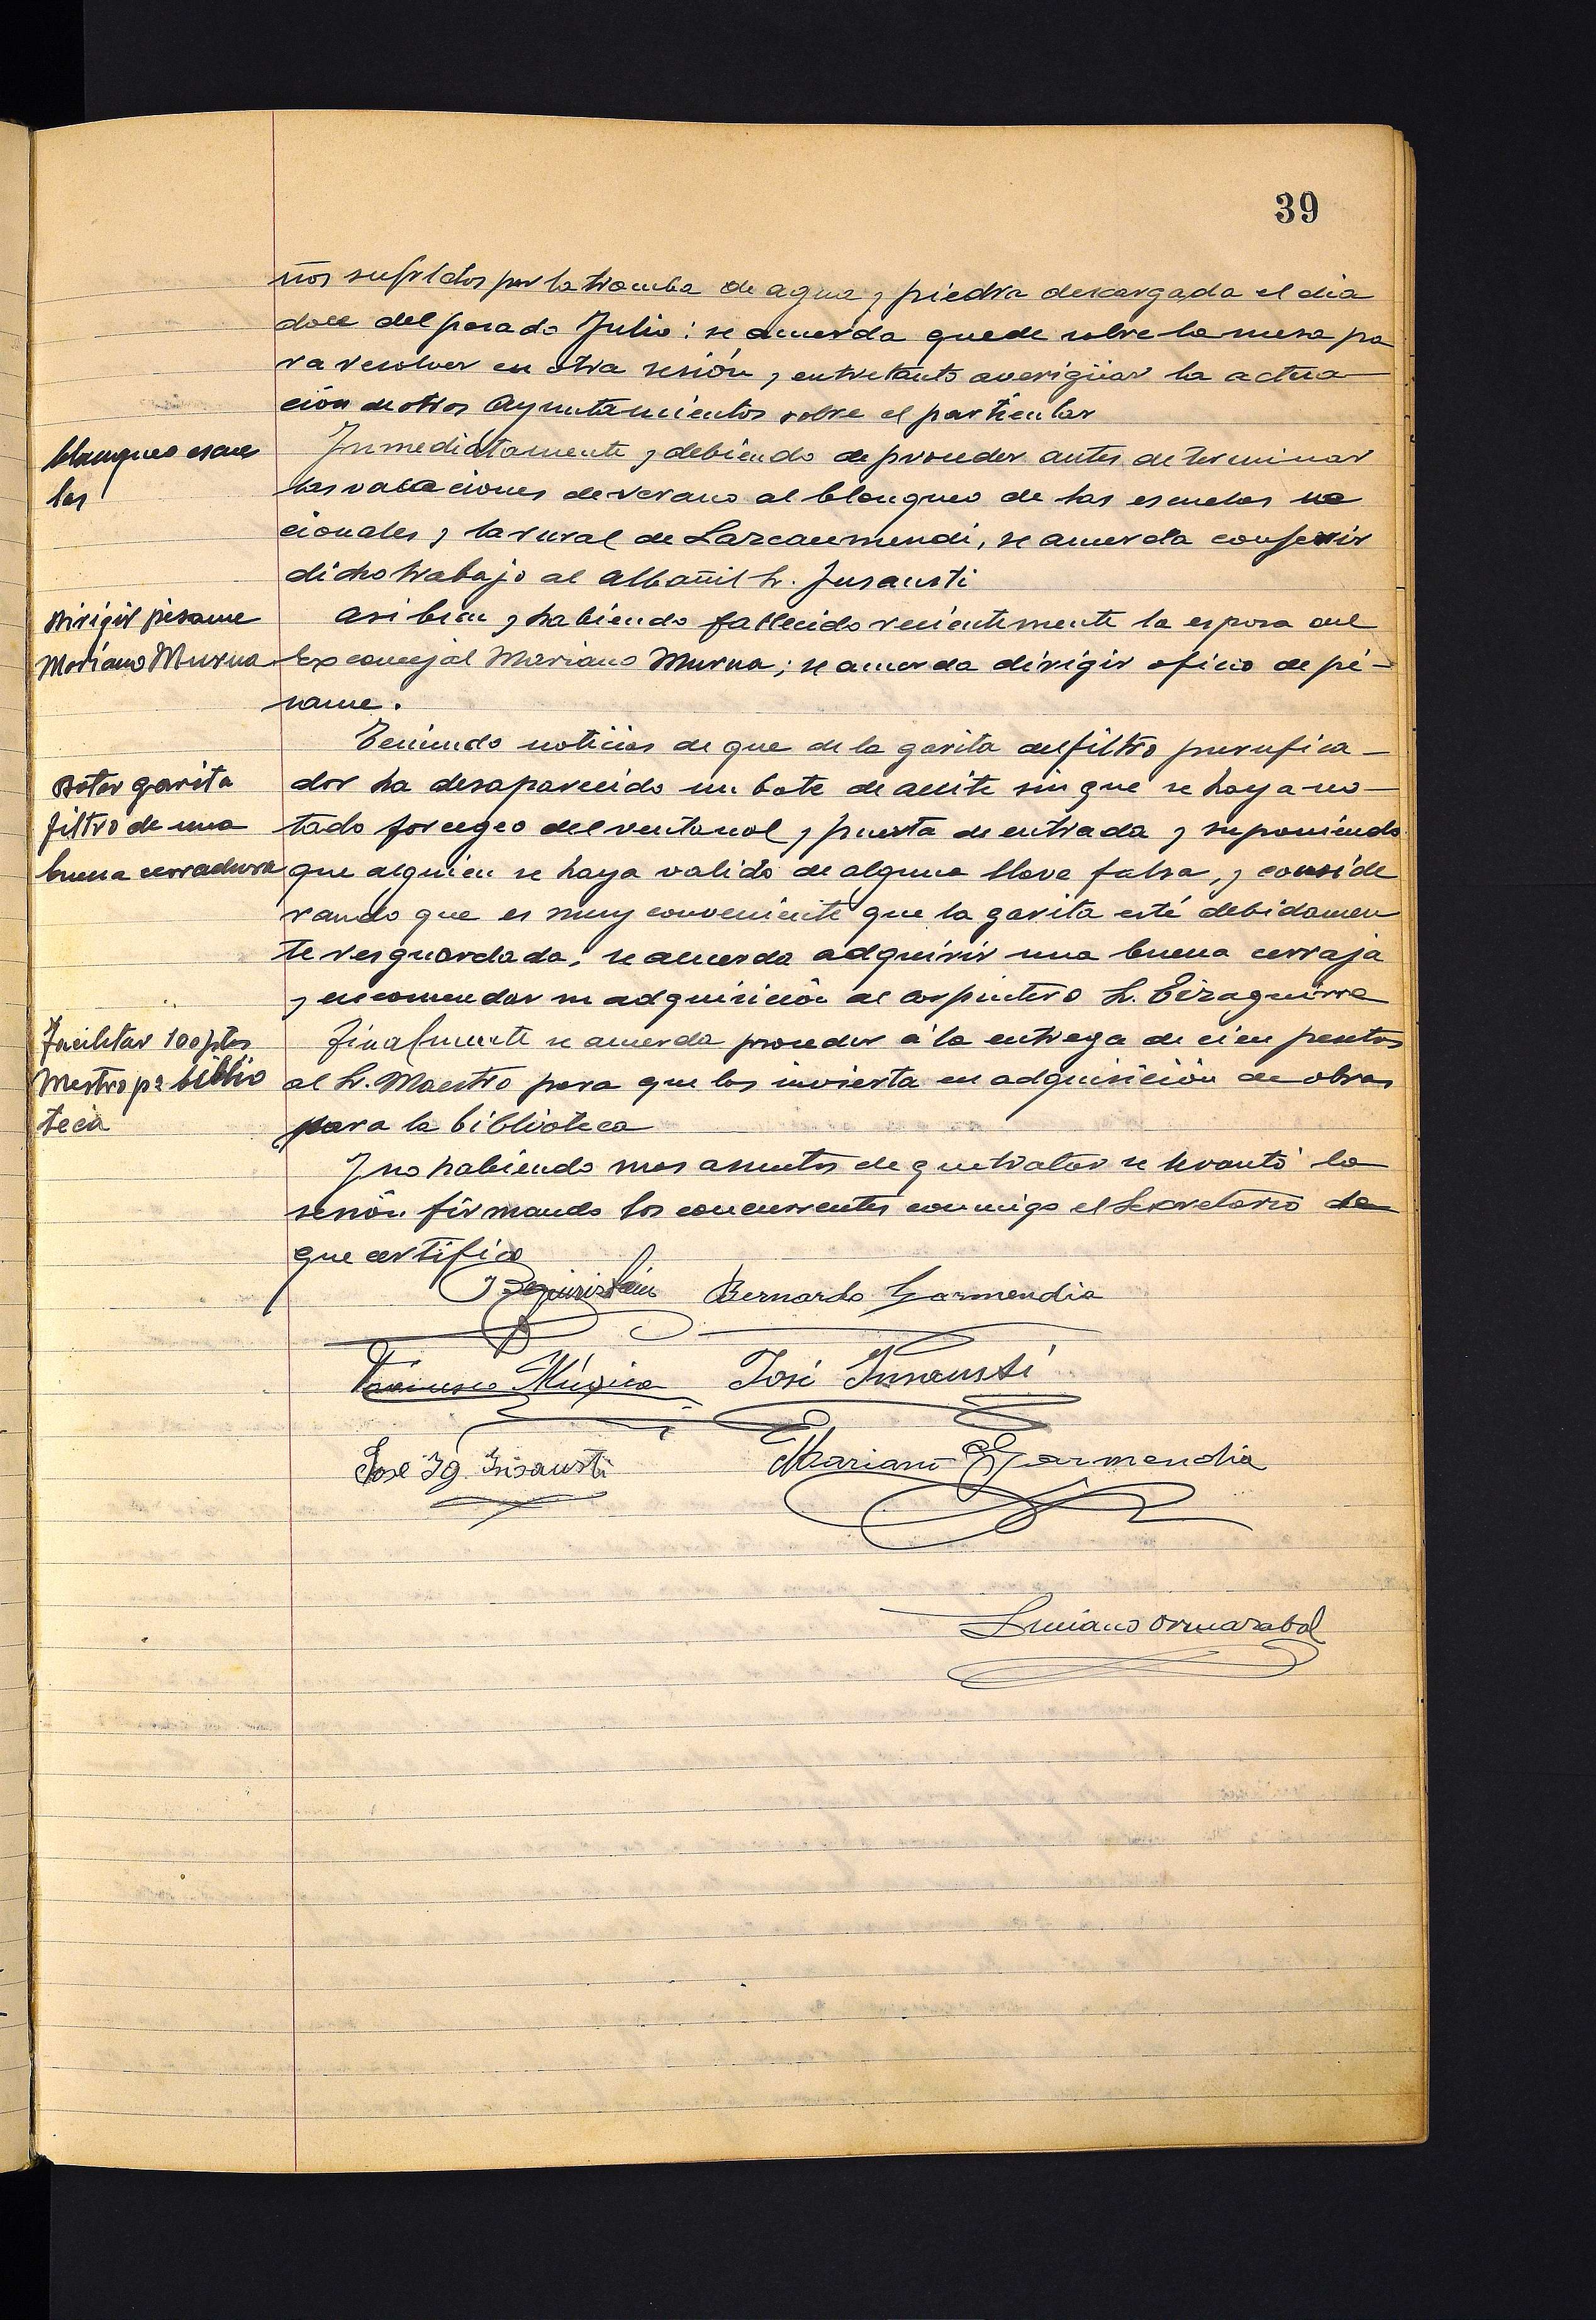 39
ños sufridos por la tromba de agua y piedra descargada el dia
doce del pasado Julio: se acuerda quede sobre la mesa pa
ra resolver en otra sesión y entretanto averigüar la actua
ción de otros Ayuntamientos sobre el particular
blanqueo escue
las
Inmediatamente y debiendo de proceder antes de terminar
las vacaciones de verano al blanqueo de las escuelas na
cionales y la rural de Lazcaumendi, se acuerda conferir
dicho trabajo al albañil Sr. Insausti
Dirigir pésame
Mariano Murua
Asi bien y habiendo fallecido recientemente la esposa del
Exconcejal Mariano Murua; se acuerda dirigir oficio de pé-
same.
Dotar garita
filtro de una
buena cerradura
Teniendo noticias de que de la garita del filtro purufica-
dor ha desaparecido un bote de aceite sin que se haya no-
tado forcegeo del ventanal y puerta de entrada y suponiendo
que alguien se haya valido de alguna llave falsa, y conside
rando que es muy conveniente que la garita esté debidamen
te resguardada; se acuerda adquirir una buena cerraja
y encomendar su adquisición al carpintero Sr. Eizaguirre
Facilitar 100 ptas
Mestro pª biblio
teca
Finalmente se acuerda proceder á la entrega de cien pesetas
al Sr. Maestro para que los invierta en adquisición de obras
para la biblioteca
Y no habiendo mas asuntos de que tratar se levantó la
sesión firmando los concurrentes conmigo el Secretario de
que certifico
Beguiristain Bernardo Garmendia
Francisco Múgica José Insausti
Jose Ig. Insausti Mariano Garmendia
Luciano Ormazabal